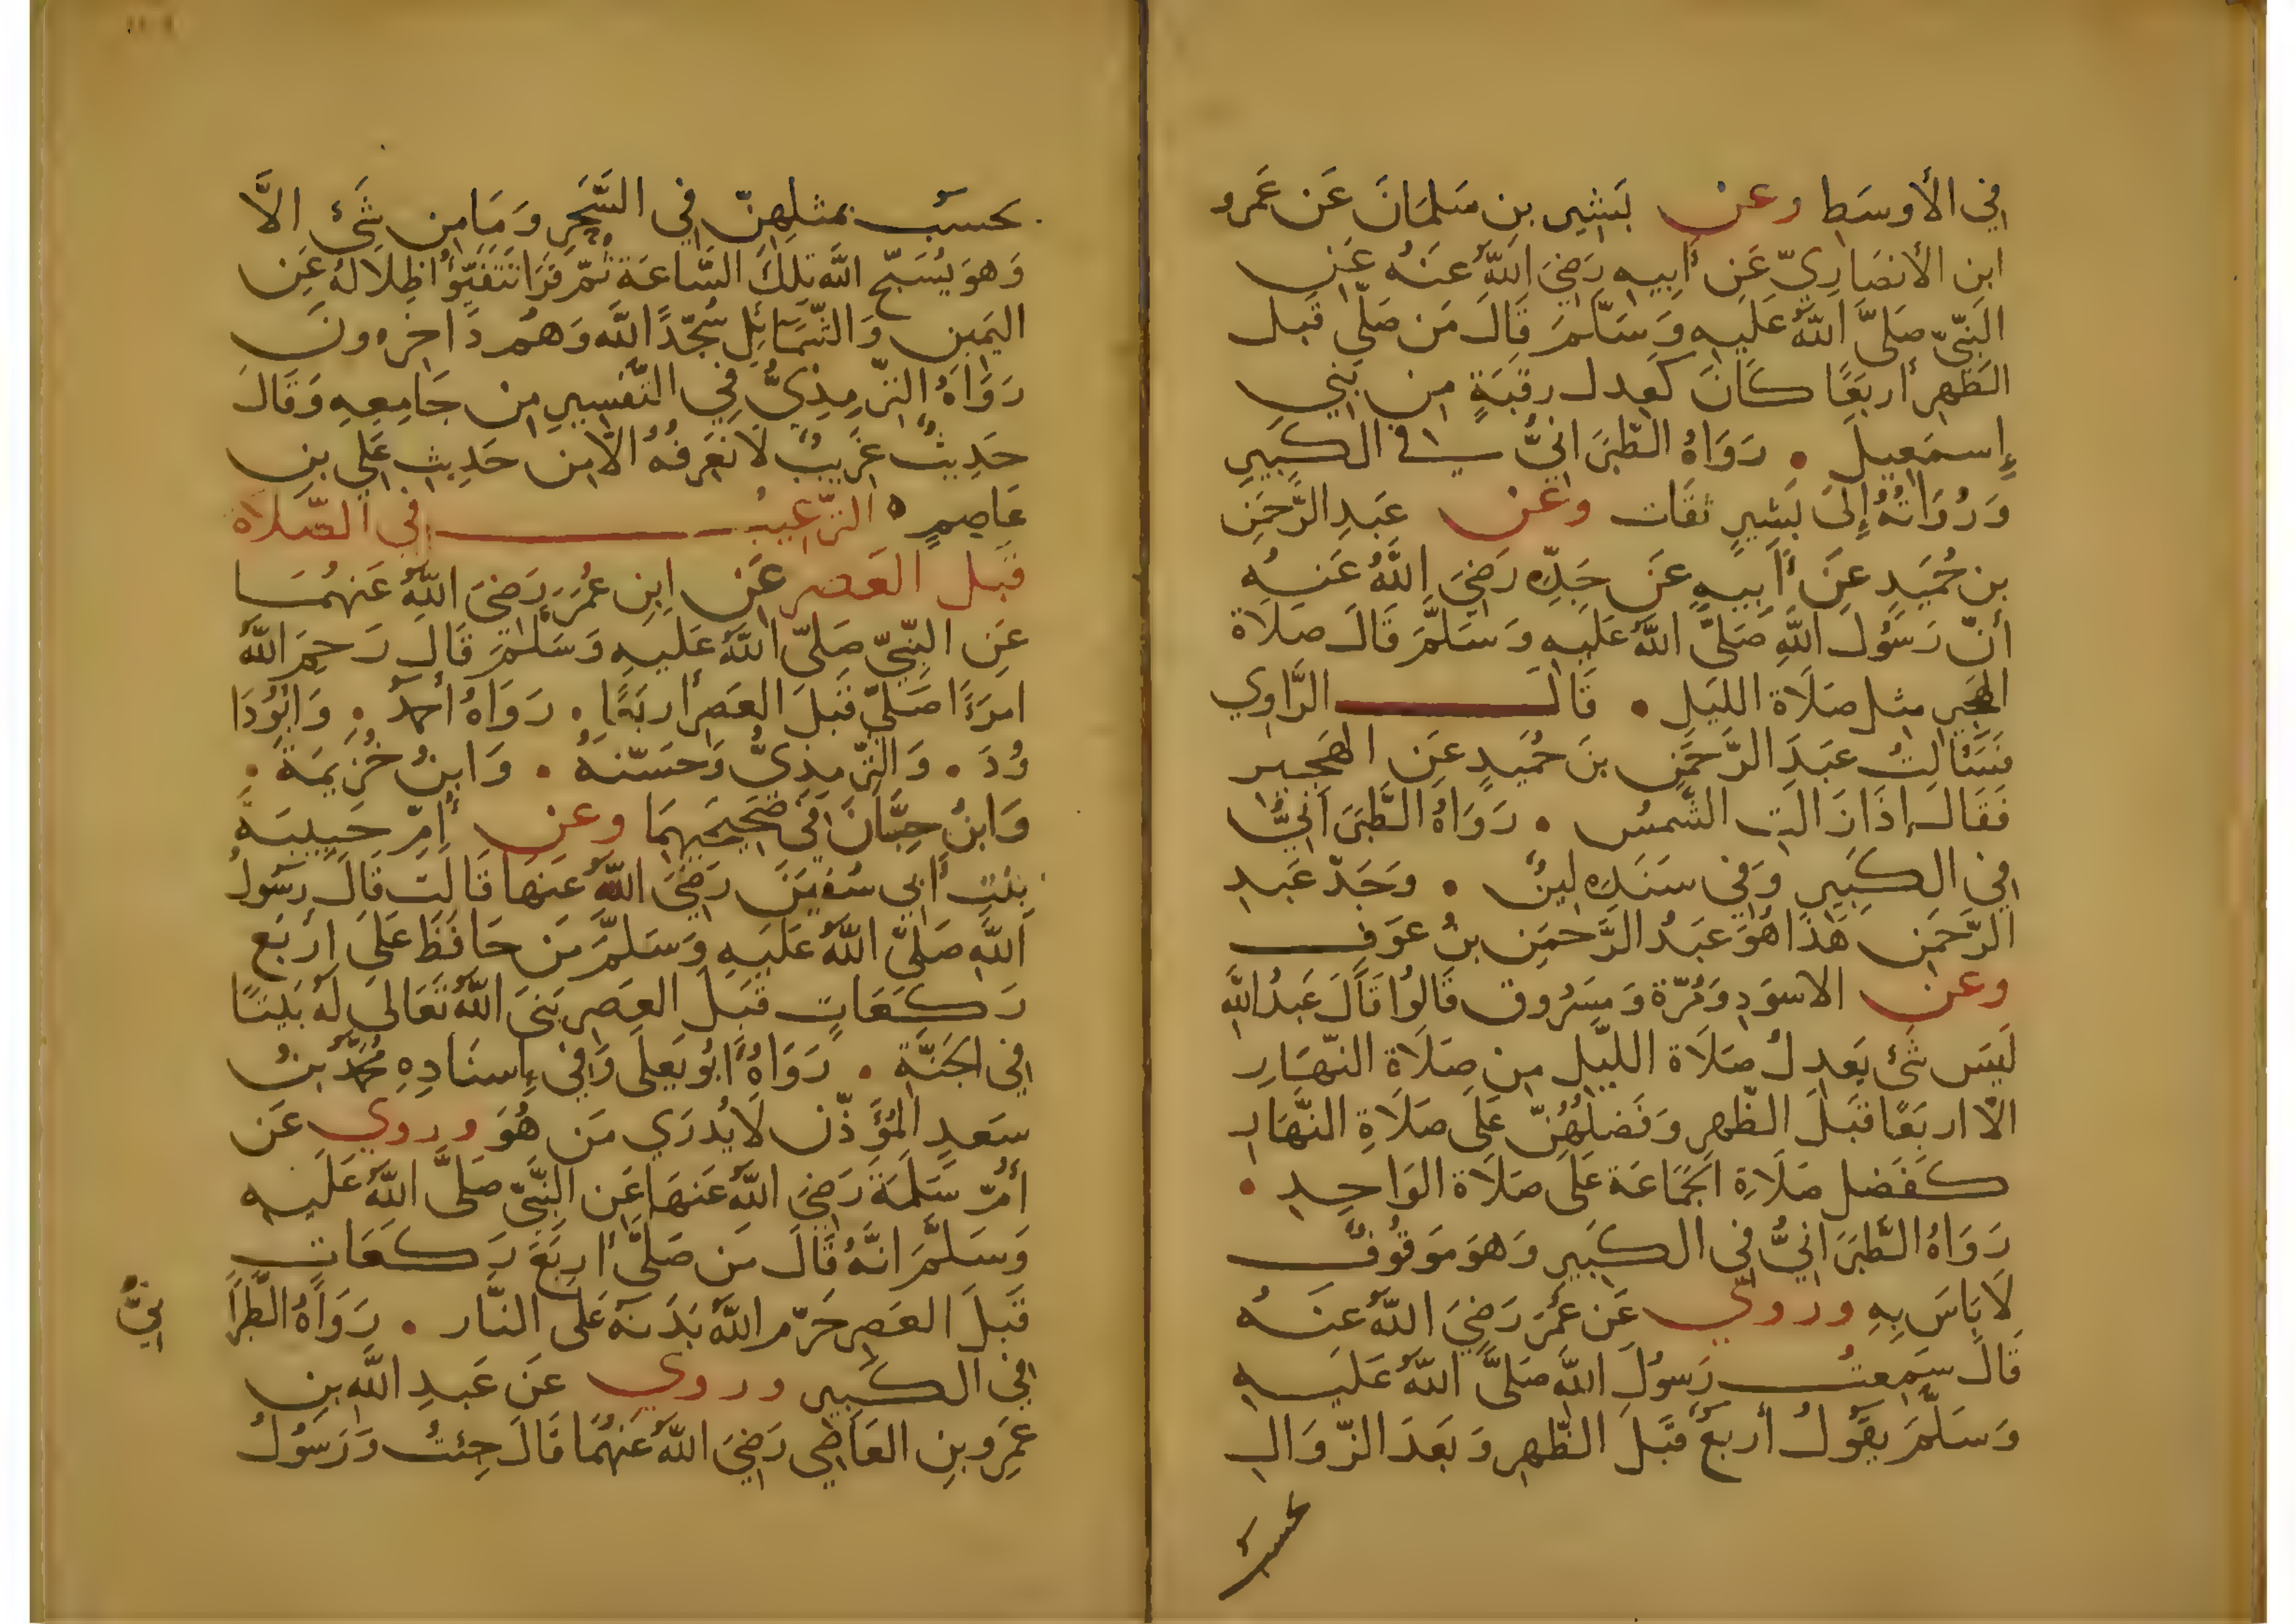 في الأوسَطِ وعن بَشيرِ بنِ سَلمَانَ عَن عَمرو
ابن الأنصَارِيّ عَن أَبيهِ رَضِيَ اللهُ عنهُ عَنِ
النَّبيِّ صَلَّى اللهُ عَلَيهِ وَسَلَّمَ قَالَ مَن صَلَّى قَبلَ
الظُهرِ أربَعًا كَانَ كعِدلِ رقَبَةٍ مِن بَنِي
إسمَعِيلَ • رَوَاهُ الطَّبَرَانِيُّ في الكَبيرِ
وَرُوَاتُهُ إِلَى بَشِيرٍ ثقَات وعَن عَبدِ الرَّحمَنِ
بن حُمَيدٍ عَن أَبيهِ عَن جَدِّهِ رَضِيَ اللهُ عَنهُ
أنّ رَسُولَ اللهِ صَلَّى اللهُ عَلَيهِ وَسَلَّمَ قَالَ صَلَاة
الهَجِيرِ مِثلُ صَلَاة الليَلِ • قَالَ الرَّاوِي
فسَئَالتُ عَبدَ الرَّحمَنِ بنَ حُمَيدٍ عَنِ الهَجِيرِ
فَقَالَ إذَا زَالتِ الشَّمسُ • رَوَاهُ الطَّبَرَانِيُّ
في الكَبيرِ وَفي سَنَدِهِ لِينٌ • وَجَدّ عَبدِ
الرَّحمَنِ هَذَا هُوَ عَبدُ الرَّحمَنِ بنُ عَوفٍ
وعن الاسوَدِ وَمُرّة وَمسرُوق قَالُوا قَالَ عَبدُ اللهِ
لَيسَ شَئ يَعدِلُ صَلَاة الليّلِ مِن صَلَاة النّهَارِ
الّا اربَعًا قَبلَ الظّهرِ وَفَضلُهُنّ عَلَى صَلَاةِ النَّهَارِ
كَفَضلِ صَلَاةِ الجَمَاعَة عَلَى صَلَاة الوَاحِدِ •
رَوَاهُ الطَّبَرَانِيُّ في الكَبيرِ وَهوَ مَوقُوفٌ
لَا بَاسَ بِهِ وروي عَن عُمَرَ رَضِيَ اللهُ عنهُ
قَالَ سَمِعتُ رَسُولَ اللهِ صَلَّى اللهُ عَلَيهِ
وَسَلَّمَ يقُولُ أربَعٌ قَبلَ الظّهرِ وَبَعدَ الزّوَالِ
تحسبُ
تحسَبُ بمثلِهِنّ في السَّحَرِ وَمَا مِن شَئ الَّا
وَهوَ يُسَبّح اللهَ تلكَ السَّاعَة ثُمّ قَرَا تَتَفَيّؤُا ظِلَالهُ عَنِ
اليَمينِ وَالشَّمَائِلِ سُجّدًا للّه وَهُم دَاخِرُونَ
رَوَاهُ التِّرمِذِيُّ فِي التَّفسِيرِ مِن جَامِعِهِ وَقَالَ
حَدِيثٌ غَرِيبٌ لَا نَعرِفُهُ الّا مِن حَدِيثِ عَلي بنِ
عَاصِمٍ ه الترّغيبُ في الصّلاة
قَبلَ العَصرِ عَنِ ابنِ عُمَرَ رَضِيَ اللهُ عَنهُمَا
عَنِ النّبيّ صَلَّى اللهُ عَلَيهِ وَسَلَّمَ قَالَ رَحِمَ اللهُ
امرَءًا صَلَّى قَبلَ العَصرِ اربَعًا • رَوَاهُ أحمد • وَابُو دَا
وُدَ • وَالتّرمِذِيُّ وَحَسّنَهُ • وَابنُ خُزَيمَة •
وَابنُ حِبَّانَ في صَحِيحَيهِمَا وعن أمّ حَبِيبَةَ
بِنتِ أبي سُفيَنَ رَضِيَ اللهُ عَنهَا قَالَت قَالَ رسُولُ
اللهِ صَلَّى اللهُ عَلَيهِ وَسَلَّمَ مَن حَافَظَ عَلَى اربَعِ
رَكَعَاتٍ قَبلَ العَصرِ بَنَى اللهُ تَعَالَى لَهُ بَيتًا
في الجَنَّةِ • رَوَاهُ أبُو يَعلَى وَفي إسنَادِهِ مُحَمَّدُ بنُ
سَعدٍ المُؤَذّن لَا يُدرَي مَن هُوَ وروي عَن
أمّ سَلَمَةَ رَضِيَ اللهُ عَنهَا عَنِ النّبيّ صَلَّى اللهُ عَلَيهِ
وَسَلَّمَ انَّهُ قَالَ مَن صَلَّى أربَعَ رَكَعَاتٍ
قَبلَ العَصرِ حَرّمَ اللهُ بَدَنَهُ عَلَى النَّار • رَوَاهُ الطَّبرَا
نِيُّ
في الكَبيرِ وروي عَن عَبدِ اللهِ بنِ
عَمرِو بنِ العَاصِي رَضِيَ اللهُ عَنهُمَا قَالَ جِئتُ وَرَسُولُ